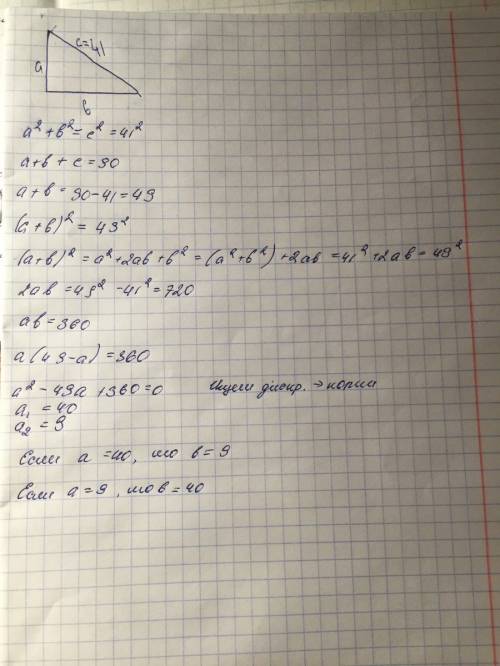 c=41
a
b
a² + b² = c² = 41²
a+b+c=90
a+b=90-41=49
(a+b)² = 49²
(a+b)² = a²+2ab+b² = (a²+b²)+2ab =41²+2ab=49²
2ab=49²-41²=720
ab=360
a(49-a)=360
a²-49a+360=0 Ищем дискр. → корни
a₁ = 40
a₂ = 9
Если a =40, то b=9
Если a=9, то b=40